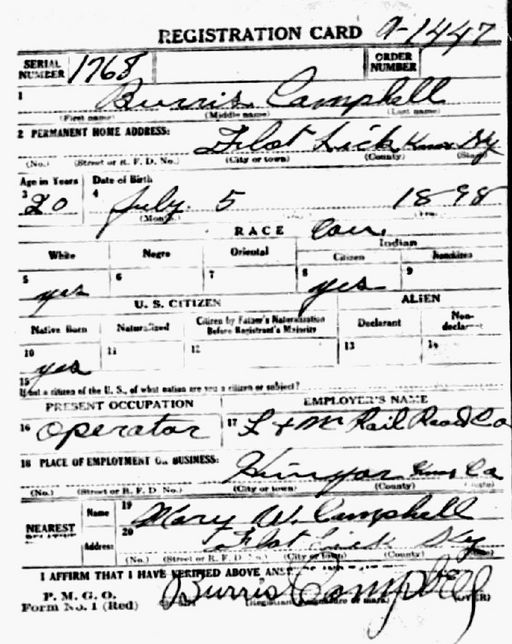 REGISTRATION CARD A-1447
SERIAL NUMBER 1768 ORDER NUMBER
1 Burris Campbell
(First name) (Middle name) (Last name)
2 PERMANENT HOME ADDRESS: Flat Lick Knox Ky
(No.) (Street or R. F. D. No.) (City or town) (County) (State)
Age in Years Date of Birth
3 20 4 July 5 1898
(Month)
RACE Cau.
White Negro Oriental Indian
Citizen Noncitizen
5 yes 6 7 8 yes 9
U. S. CITIZEN ALIEN
Native Born Naturalized Citizen by Father's Naturalization Before Registrant's Majority Declarant Non-declarant
10 yes 11 12 13 14
15 If not a citizen of the U. S., of what nation are you a citizen or subject?
PRESENT OCCUPATION EMPLOYER'S NAME
16 Operator 17 L + N Rail Road Co
18 PLACE OF EMPLOYMENT OR BUSINESS:
(No.) (Street or R. F. D. No.) (City or town) (County) (State)
NEAREST RELATIVE Name 19 Mary W. Campbell
Address 20 Flat Lick Ky
(No.) (Street or R. F. D. No.) (City or town) (County) (State)
I AFFIRM THAT I HAVE VERIFIED ABOVE
P. M. G. O.
Form No. 1 (Red) Burris Campbell
(OVER)